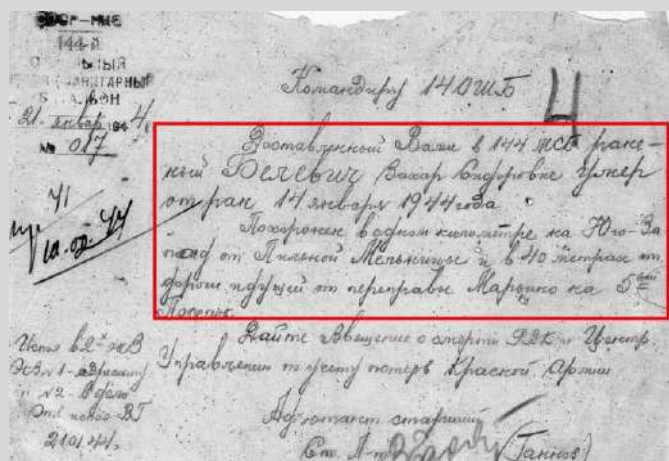 144-й
21 январ 1944
№ 017
Командиру 140 ШБ
4
Доставленный Вами в 144 МСБ ране-
ный Белевич Захар Сидорович умер
от ран 14 января 1944 года.
Похоронен в одном километре на Юго-За
пад от Пильной Мельницы и в 40 метрах от
дороги идущей от переправы Марьино на 5ый
Поселок.
Дайте Звещение о смерти РВК и Центр.
Управлению по учету потерь Красной Армии
Адъютант старший
Ст. Л-т
41
10.02.44
Экз № 1 - адресату
№ 2 - в дело
21.01.44.